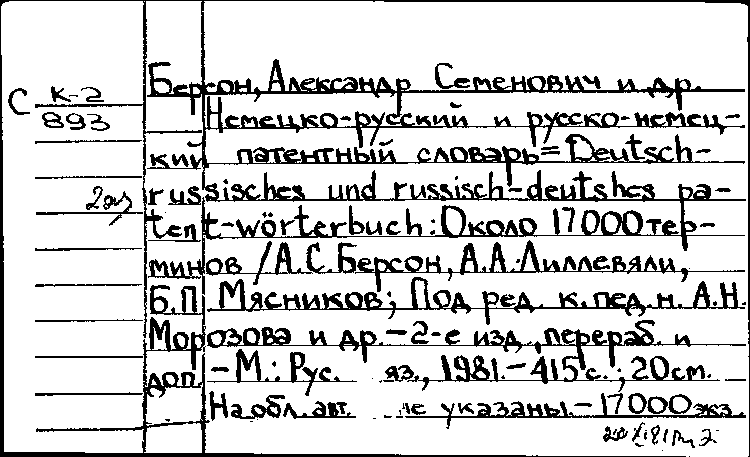 Берсон, Александр Семенович и др.
С К-2
893
Немецко-русский и русско-немец-
кий патентный словарь=Deutsch-
russisches und russisch-deutshes pa-
2аз
tent-wörterbuch: Около 17000 тер-
минов /А.С.Берсон, А.А.Лиллевяли,
Б.П. Мясников; Под ред. к.пед.н. А.Н.
Морозова и др.-2-е изд., перераб. и
доп. -М.: Рус. яз., 1981.-415 с.; 20см.
На обл. авт. не указаны.-17000 экз.